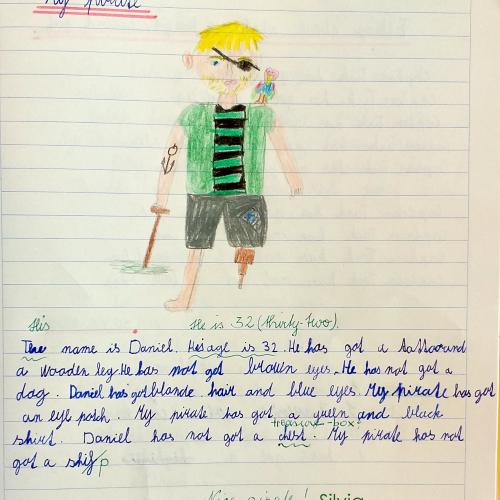 My pirate
His He is 32 (thirty-two).
The name is Daniel. His age is 32. He has got a tattoo and
a wooden leg. He has not got brown eyes. He has not got a
dog. Daniel has got blonde hair and blue eyes. My pirate has got
an eye patch. My pirate has got a green and black
treasure-box
shirt. Daniel has not got a chest. My pirate has not
got a shif/p
Nice pirate! Silvia